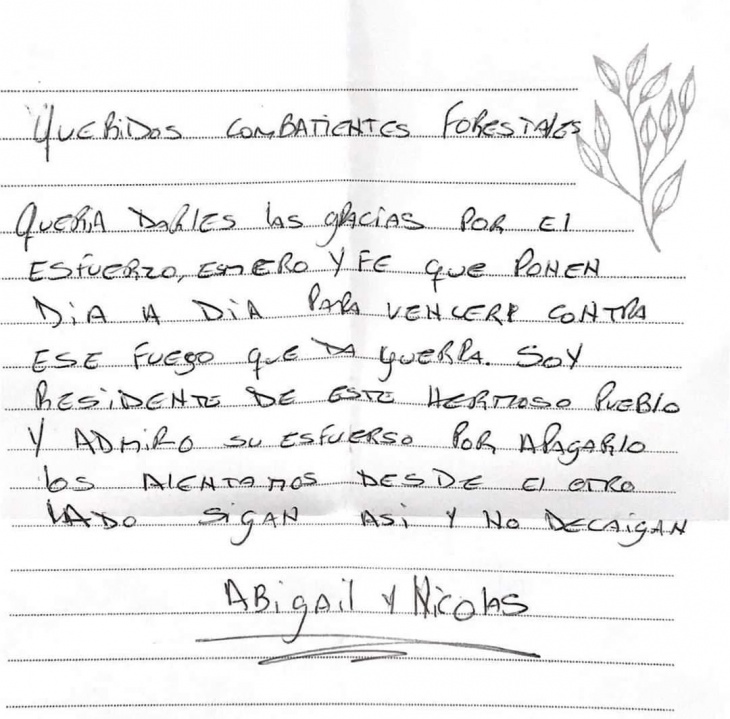 QUERIDOS COMBATIENTES FORESTALES
QUERIA DARLES las gRACIAS POR El
ESFUERZO, ESMERO Y FE que PONEN
DIA A DIA PARA VENCER CONTRA
ESE FUEGO que DA GUERRA. SOY
RESIDENTE DE ESTE HERMOSO PUEBlO
Y ADMIRO SU ESFUERSO POR APAGARlO
los AlENTAMOS DESDE El OTRO
LADO SIGAN ASI Y NO DECAIGAN
ABigail y Nicolas